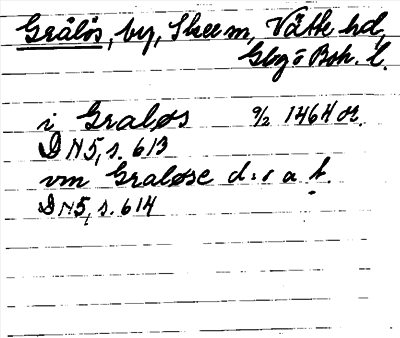 Grålös, by, Skee sn, Vätte hd,
Gbg o Boh. l.
i Graløs 9/2 1464 or.
DN 5, s. 613
vm Graløse d:o a t.
DN 5, s. 614